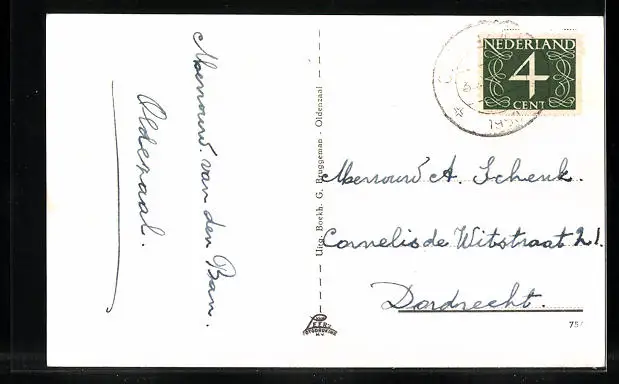 Mevrouw van den Ban.
Oldenzaal.
Uitg. Boekh. G. Bruggeman - Oldenzaal
NEDERLAND
4
CENT
Mevrouw A. Schenk.
Cornelis de Witstraat 21.
Dordrecht.